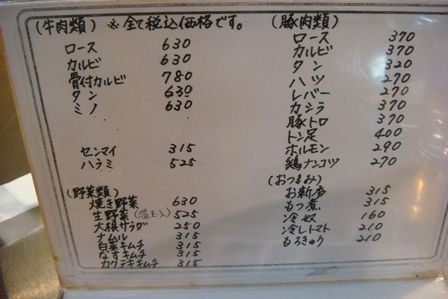 (牛肉類) ※全て税込価格です。
ロース 630
カルビ 630
骨付カルビ 780
タン 630
ミノ 630
センマイ 315
ハラミ 525
(野菜類)
焼き野菜 630
生野菜 525
大根サラダ 250
ナムル 315
白菜キムチ 315
なすキムチ 315
カクテキキムチ 315
(豚肉類)
ロース 370
カルビ 370
タン 320
ハツ 270
レバー 270
カシラ 370
豚トロ 370
トン足 400
ホルモン 290
鶏ナンコツ 270
(おつまみ)
お新香 315
もつ煮 315
冷奴 160
冷しトマト 210
もろきゅう 210